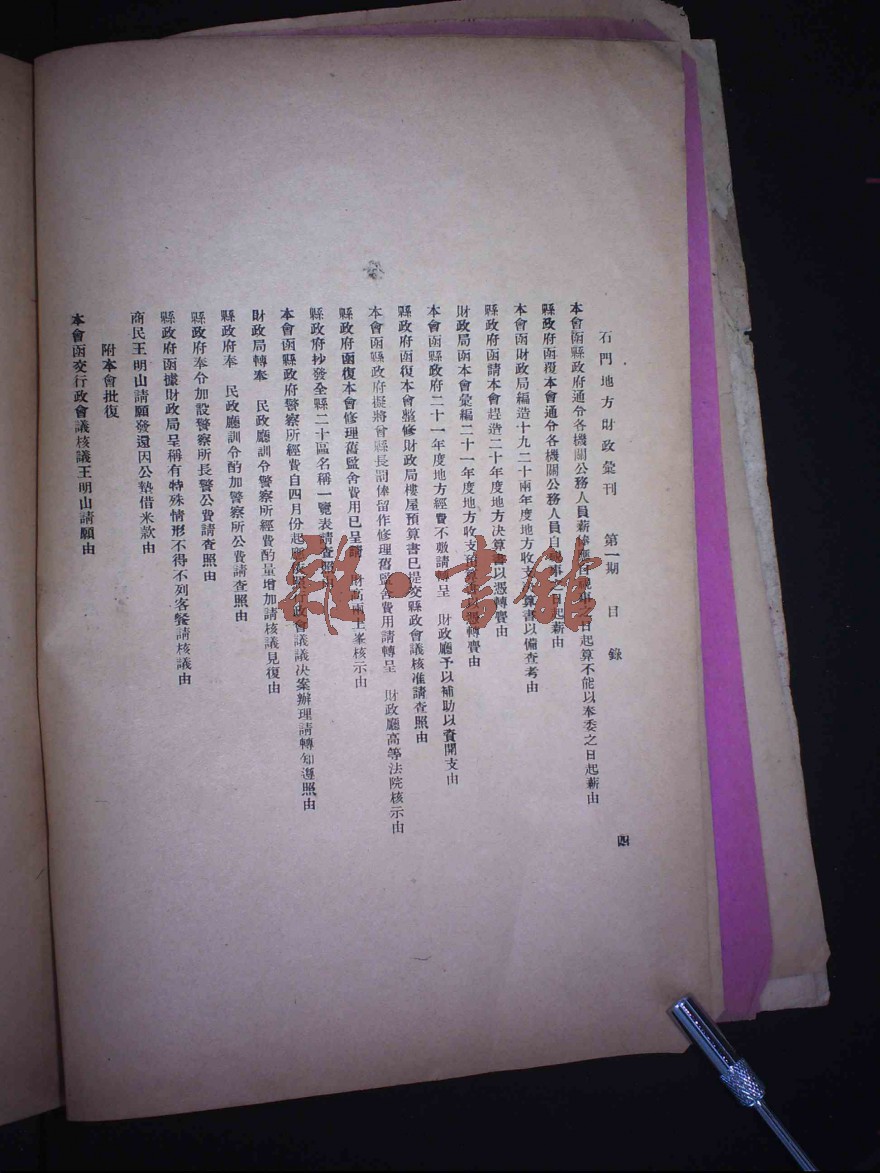 石門地方財政彙刊 第一期 目錄 四
本會函縣政府通令各機關公務人員薪俸應自視事之日起算不能以奉委之日起薪由
縣政府函覆本會通令各機關公務人員自視事之日起薪由
本會函財政局編造十九二十兩年度地方收支決算書以備查考由
縣政府函請本會趕造二十年度地方決算書以憑轉賷由
財政局函本會彙編二十一年度地方收支預算書以憑轉賷由
本會函縣政府二十一年度地方經費不敷請轉呈 財政廳予以補助以資開支由
縣政府函復本會整修財政局樓屋預算書已提交縣政會議核准請查照由
本會函縣政府擬將曾縣長罰俸留作修理舊監舍費用請轉呈 財政廳高等法院核示由
縣政府函復本會修理舊監舍費用已呈請 財高兩上峯核示由
縣政府抄發全縣二十區名稱一覽表請查照由
本會函縣政府警察所經費自四月份起應依照行政會議議決案辦理請轉知遵照由
財政局轉奉 民政廳訓令警察所經費酌量增加請核議見復由
縣政府奉 民政廳訓令酌加警察所公費請查照由
縣政府奉令加設警察所長警公費請查照由
縣政府函據財政局呈稱有特殊情形不得不列客餐請核議由
商民王明山請願發還因公墊借米款由
附本會批復
本會函交行政會議核議王明山請願由
雜·書館